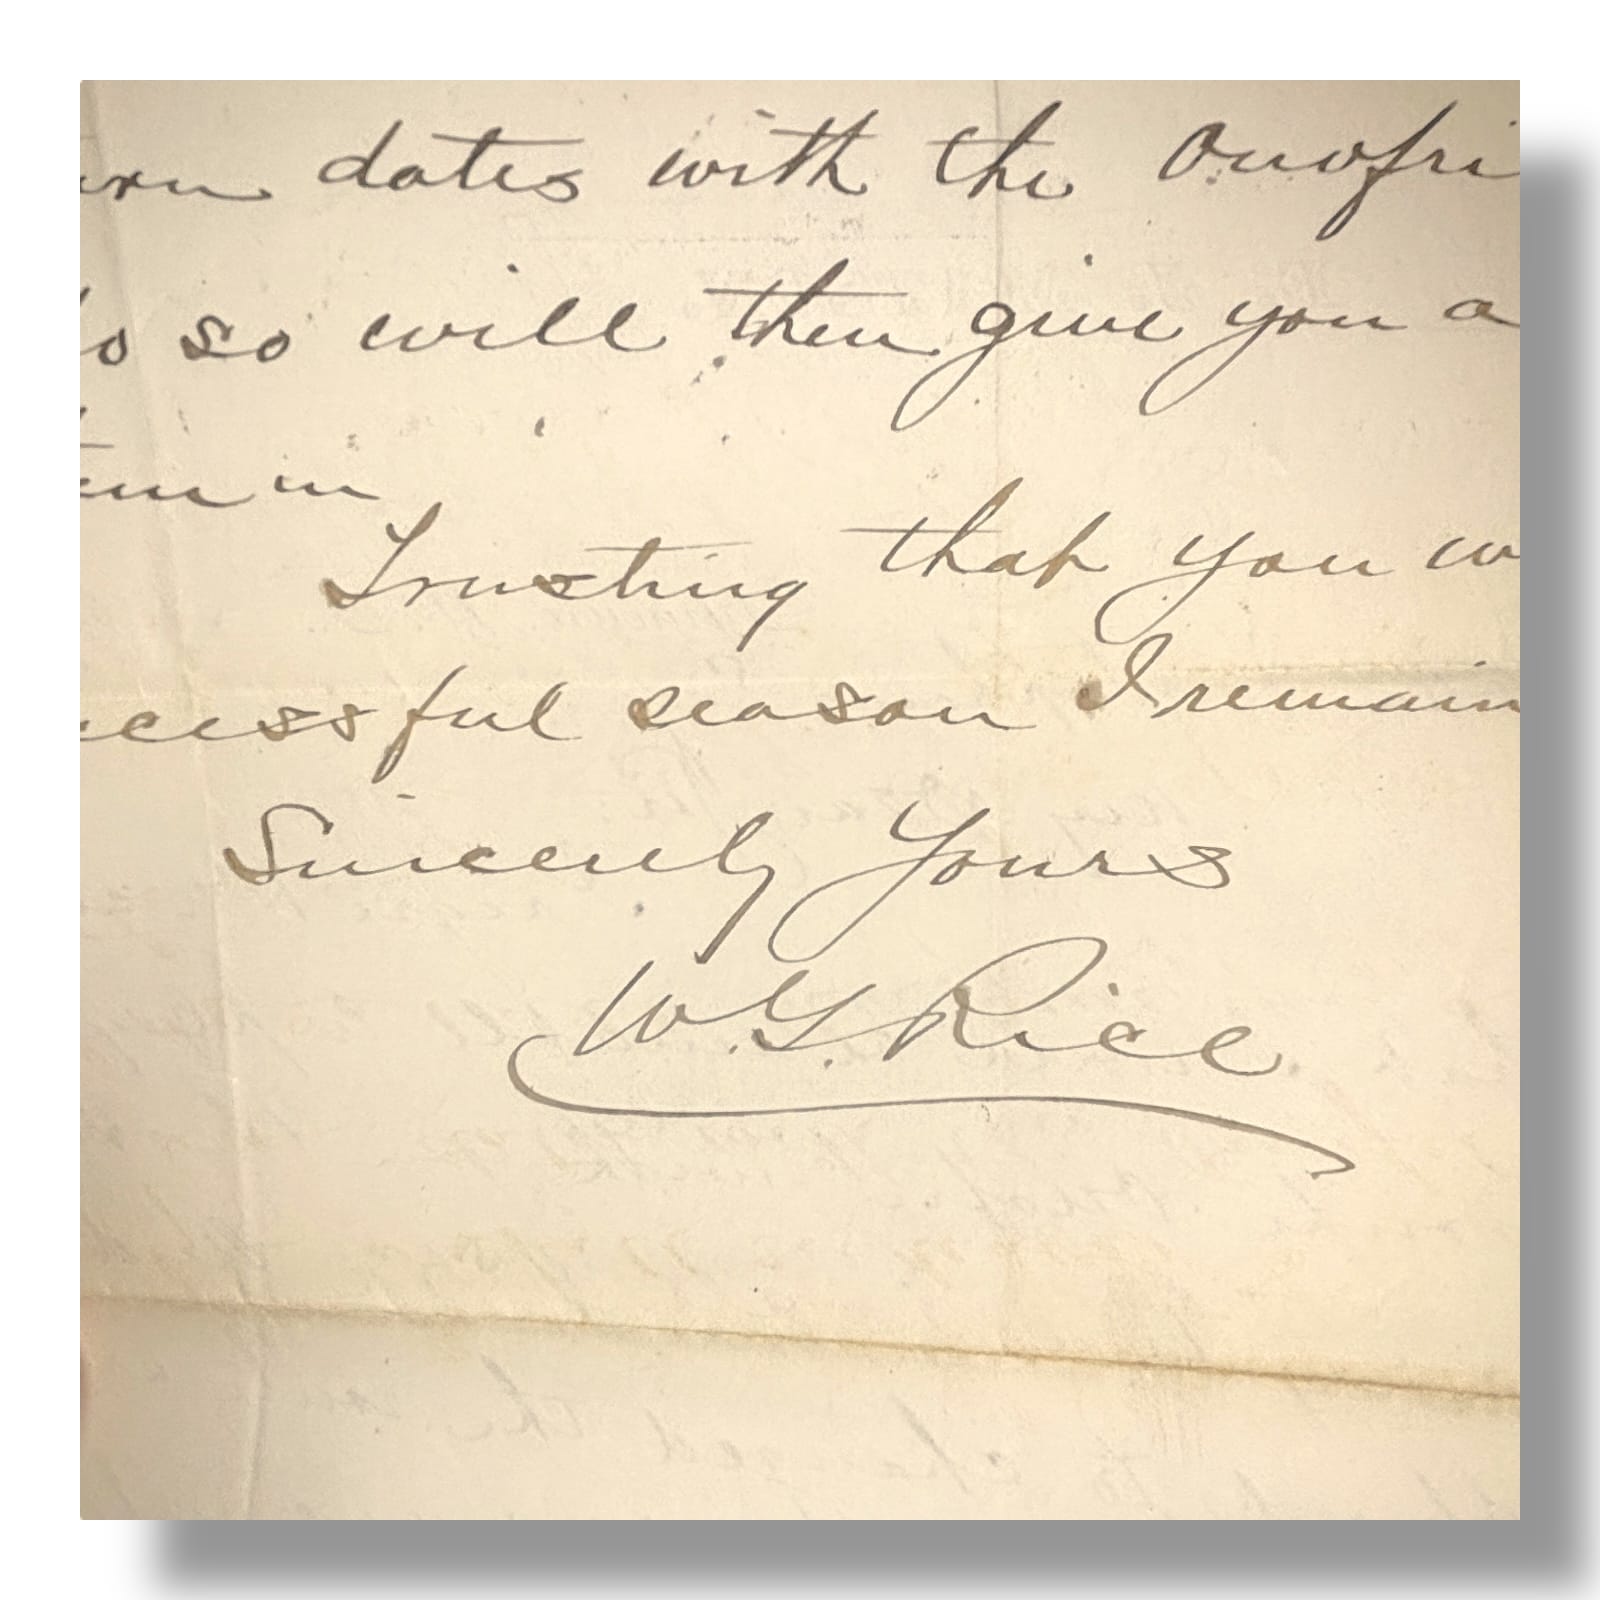 dates with the Onofri
do so will then give you a
in
Trusting that you w
ccessful season I remain
Sincerely Yours
W.G. Rice